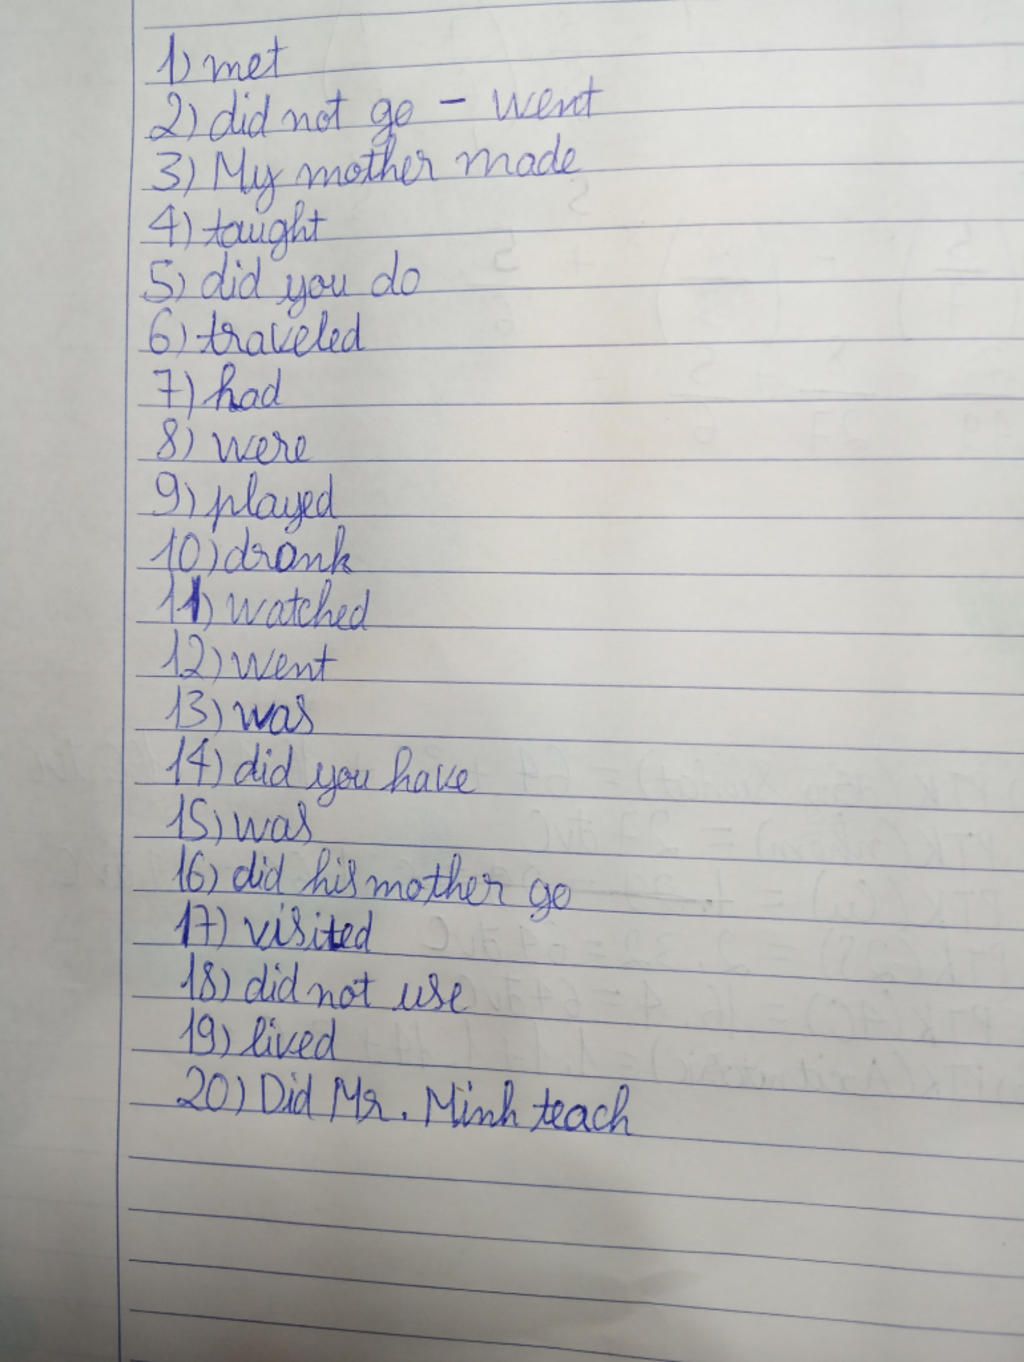 1) met
2) did not go - went
3) My mother made
4) taught
5) did you do
6) traveled
7) had
8) were
9) played
10) drank
11) watched
12) went
13) was
14) did you have
15) was
16) did his mother go
17) visited
18) did not use
19) lived
20) Did Mr. Minh teach